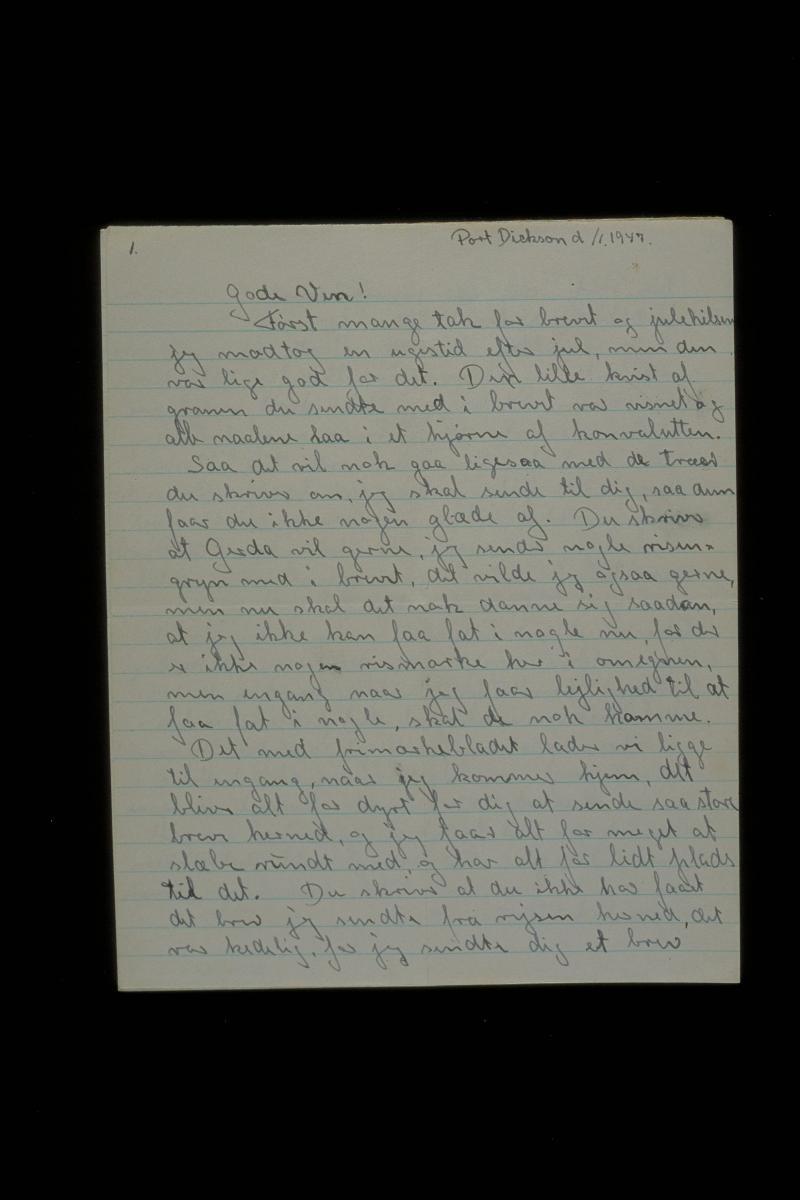 1.
Port Dickson d 1/1. 1947.
Gode Ven!
Først mange tak for brevet og julehilsen
jeg modtog en ugestid efter jul, men den
var lige god for det. Den lille kvist af
granen du sendte med i brevet var visnet og
alle naalene laa i et hjørne af konvalutten.
Saa det vil nok gaa ligesaa med de træer
du skriver om, jeg skal sende til dig, saa dem
faar du ikke nogen glæde af. Du skriver
at Gerda vil gerne, jeg sender nogle risen-
gryn med i brevet, det vilde jeg ogsaa gerne,
men nu skal det nok danne sig saadan,
at jeg ikke kan faa fat i nogle nu, for der
er ikke nogen rismarke her i omegnen,
men engang naar jeg faar lejlighed til at
faa fat i nogle, skal de nok komme.
Det med frimærkebladet lader vi ligge
til engang, naar jeg kommer hjem, det
bliver alt for dyrt for dig at sende saa store
breve herned, og jeg faar alt for meget at
slæbe rundt med, og har alt for lidt plads
til det. Du skriver at du ikke har faaet
det brev jeg sendte fra rejsen herned, det
var kedelig, for jeg sendte dig et brev